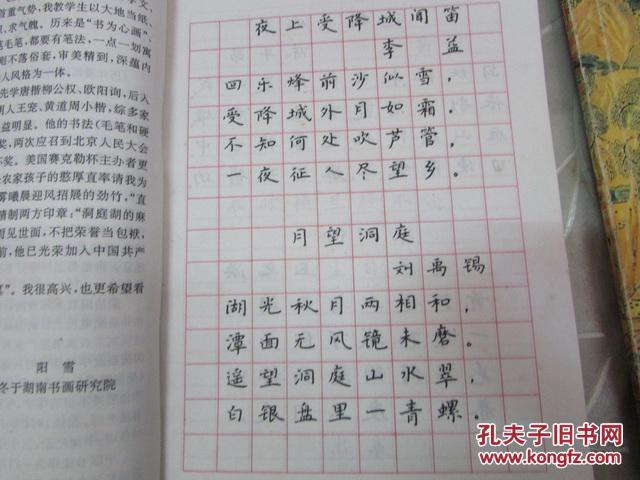 首重气势,我教学生以大地当纸,
,求气魄。历来是“书为心画”,
毛笔,都要有笔法,一点一划寓
不落俗套,审美精到,深蕴内
人风格为一体。
先学唐楷柳公权、欧阳询,后入
明人王宠、黄道周小楷,综多家
益明显。他的书法(毛笔和硬
奖,两次应召到北京人民大会
奖。美国赛克勒杯主办者更
农家孩子的憨厚直率请我为
雾曦晨迎风招展的劲竹,“直
精制两方印章:“洞庭湖的麻
雨见世面,不把荣誉当包袱,
前,他已光荣加入中国共产
”。我很高兴,也更希望看
阳雪
冬于湖南书画研究院
夜上受降城闻笛
李益
回乐烽前沙似雪,
受降城外月如霜。
不知何处吹芦管,
一夜征人尽望乡。
月望洞庭
刘禹锡
湖光秋月两相和,
潭面无风镜未磨。
遥望洞庭山水翠,
白银盘里一青螺。
孔夫子旧书网
KONGFZ.COM